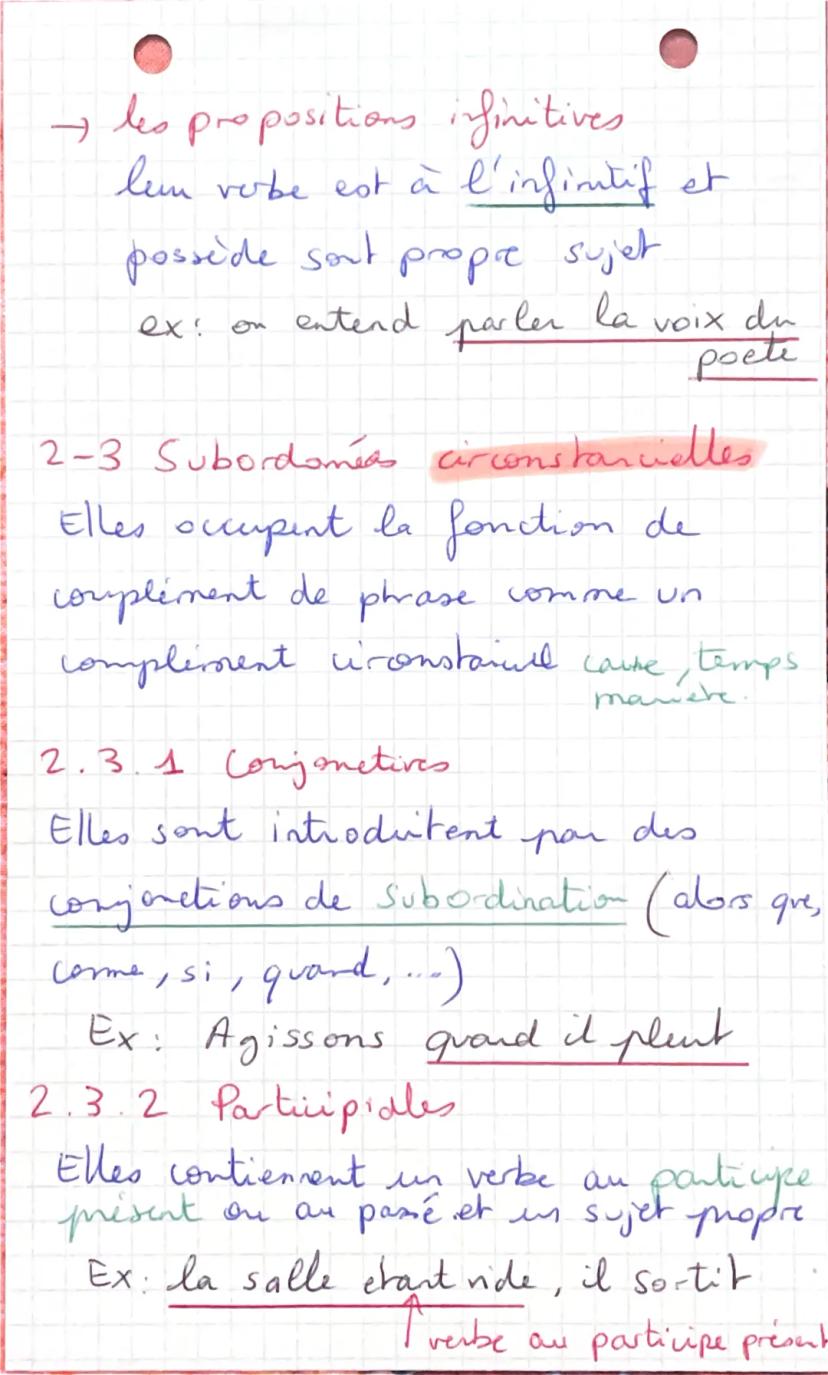 → les propositions infinitives
leur verbe est à l'infinitif et
possède sont propre sujet
ex: on entend parler la voix du
poete
2-3 Subordonnées circonstancielles
Elles occupent la fonction de
complément de phrase comme un
complément circonstanciel cause, temps
manière.
2.3.1 Conjonctives
Elles sont introduitent par des
conjonctions de subordination (alors que,
comme, si, quand, ...)
Ex: Agissons quand il pleut
2.3.2 Participiales
Elles contiennent un verbe au participe
présent ou au passé et un sujet propre
Ex: la salle étant vide, il sortit
↑ verbe au participe présent